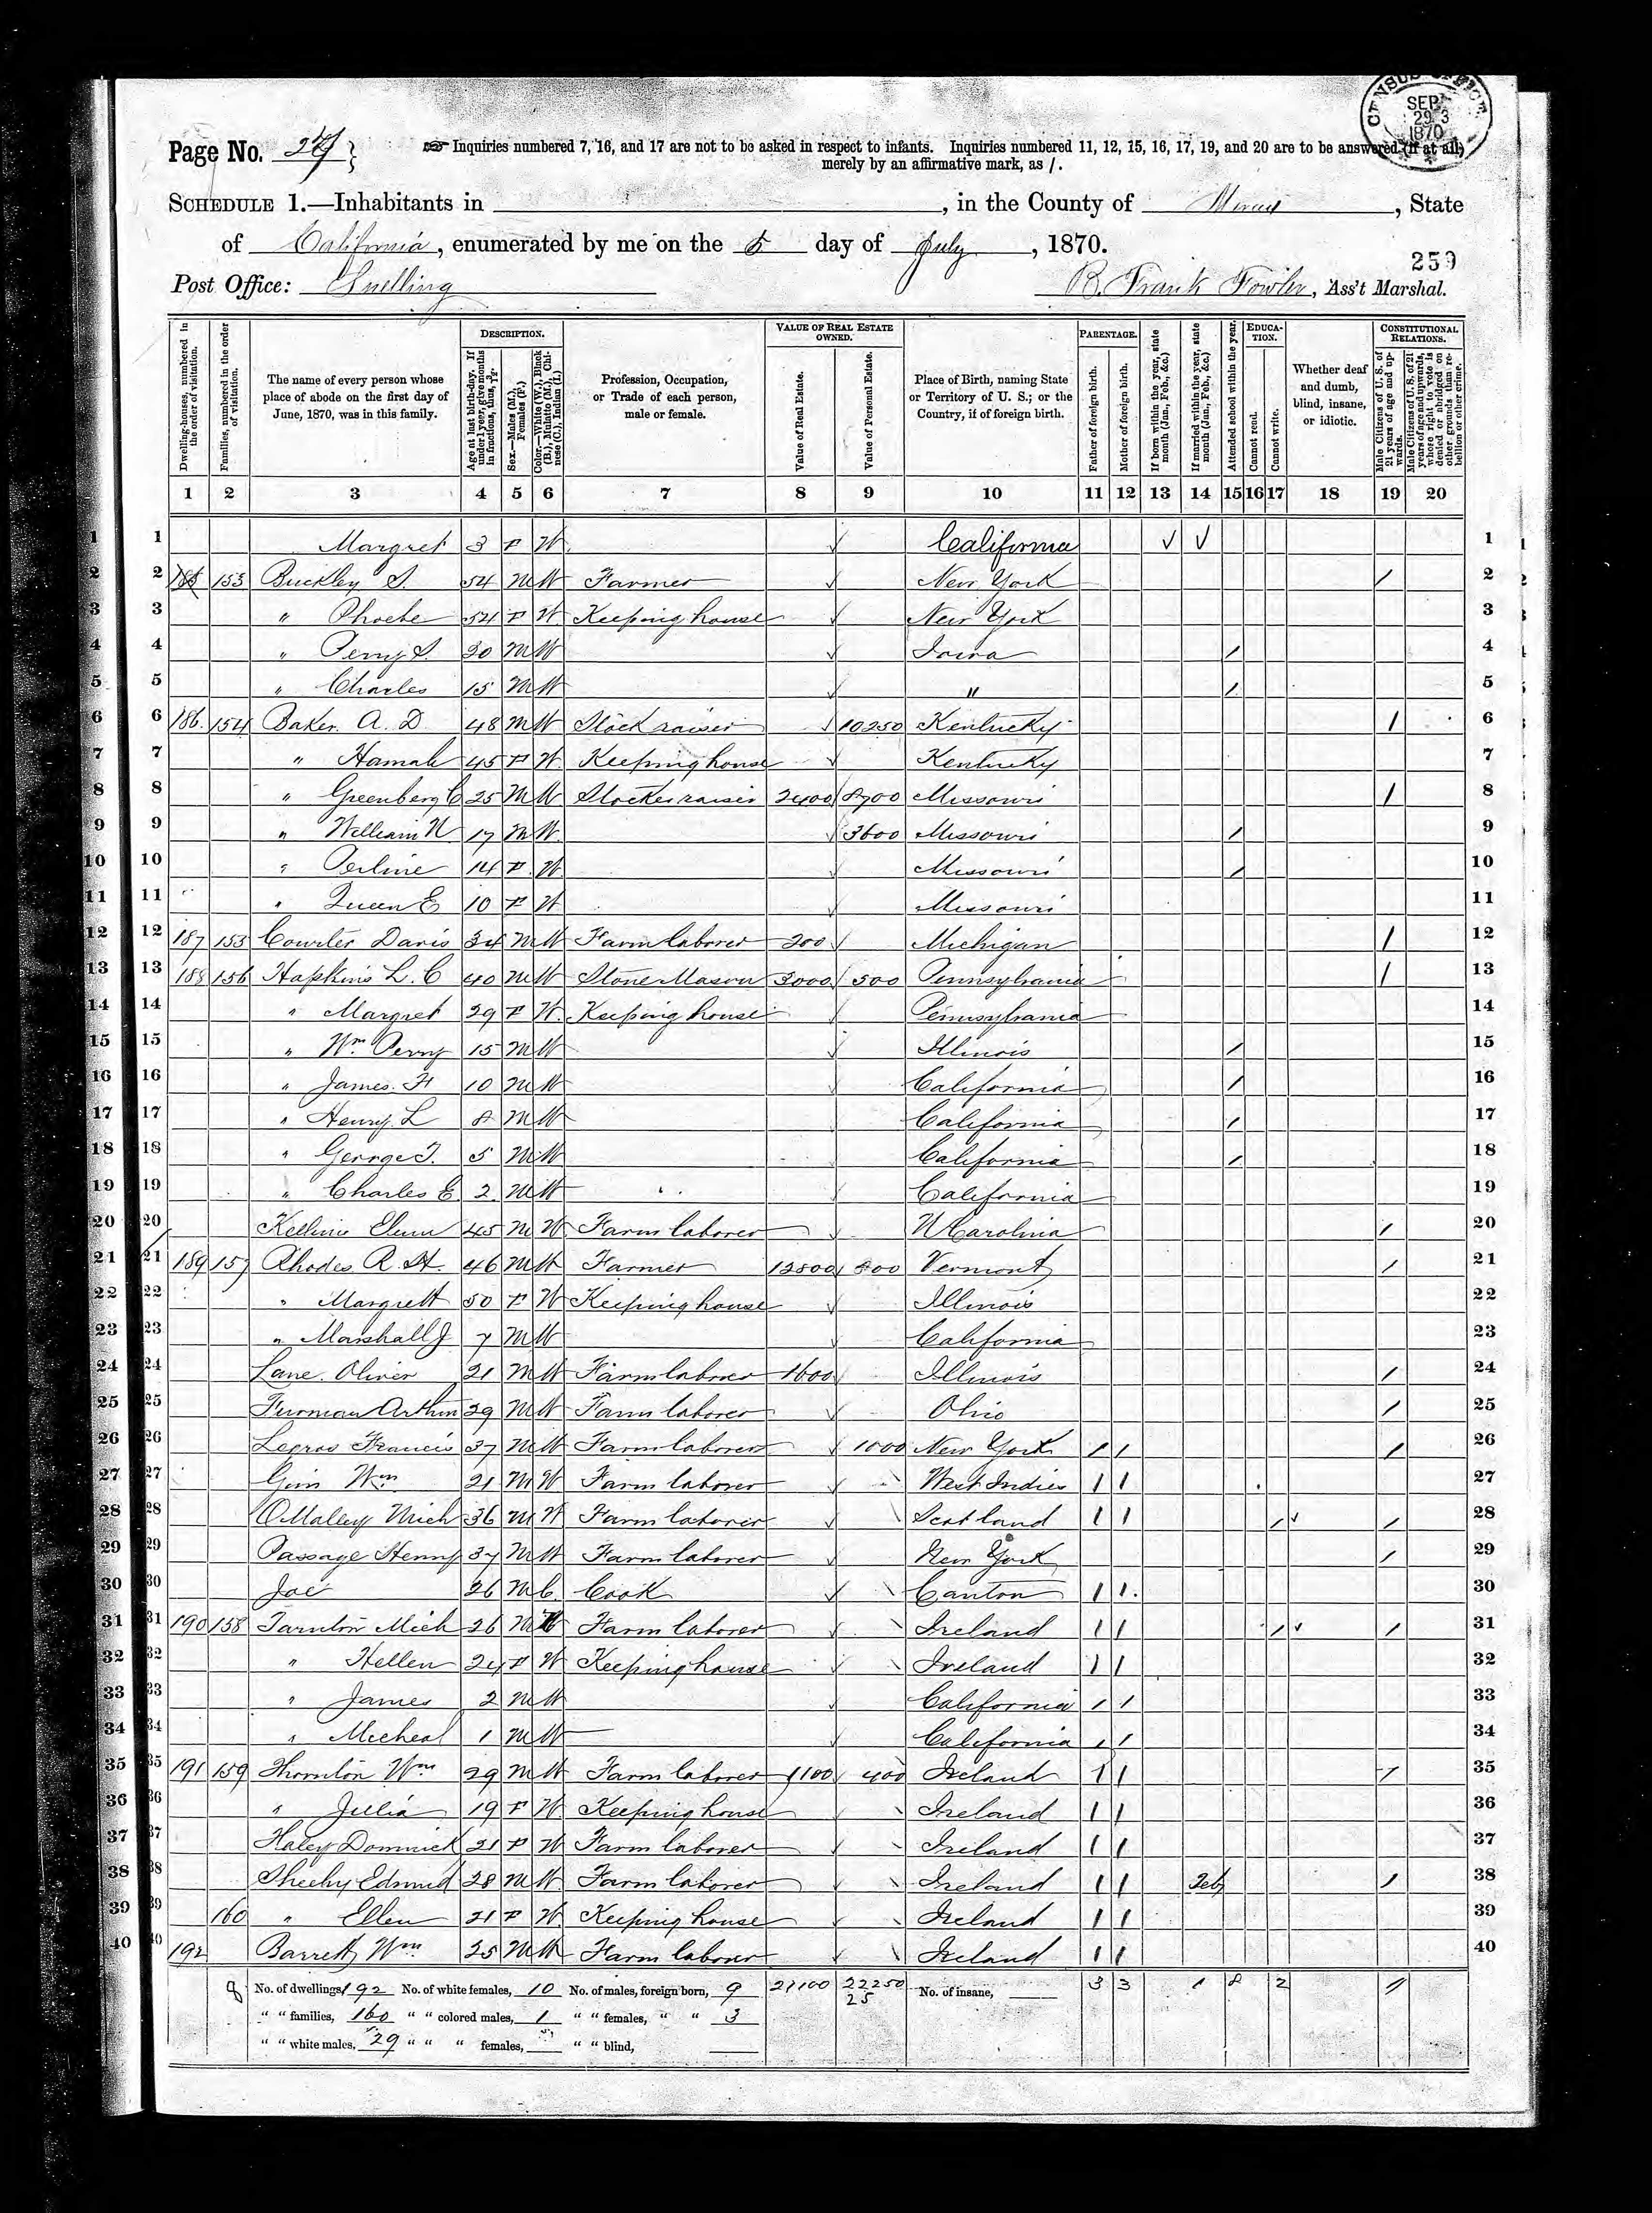 CENSUS OFFICE
SEP
29
1870
Page No.
☞ Inquiries numbered 7, 16, and 17 are not to be asked in respect to infants. Inquiries numbered 11, 12, 15, 16, 17, 19, and 20 are to be answered (if at all)
merely by an affirmative mark, as /.
SCHEDULE 1.—Inhabitants in , in the County of Merced, State
of California, enumerated by me on the 5 day of July, 1870.
259
Post Office: Snelling R. Frank Fowler, Ass't Marshal.
Dwelling-houses, numbered in the order of visitation.
Families, numbered in the order of visitation.
The name of every person whose place of abode on the first day of June, 1870, was in this family.
DESCRIPTION.
Age at last birth-day. If under 1 year, give months in fractions, thus, 3/12.
Sex.—Males (M.), Females (F.)
Color.—White (W.), Black (B.), Mulatto (M.), Chinese (C.), Indian (I.)
Profession, Occupation, or Trade of each person, male or female.
VALUE OF REAL ESTATE OWNED.
Value of Real Estate.
Value of Personal Estate.
Place of Birth, naming State or Territory of U. S.; or the Country, if of foreign birth.
PARENTAGE.
Father of foreign birth.
Mother of foreign birth.
If born within the year, state month (Jan., Feb., &c.)
If married within the year, state month (Jan., Feb., &c.)
Attended school within the year.
EDUCATION.
Cannot read.
Cannot write.
Whether deaf and dumb, blind, insane, or idiotic.
CONSTITUTIONAL RELATIONS.
Male Citizens of U. S. of 21 years of age and upwards.
Male Citizens of U. S. of 21 years of age and upwards, whose right to vote is denied or abridged on other grounds than rebellion or other crime.
1 2 3 4 5 6 7 8 9 10 11 12 13 14 15 16 17 18 19 20
1 1 Margret 3 F W ✓ California ✓ ✓ 1
2 2 153 Buckley S. 54 M W Farmer ✓ New York / 2
3 3 " Phoebe 54 F W Keeping house ✓ New York 3
4 4 " Perry S. 20 M W ✓ Iowa / 4
5 5 " Charles 15 M W ✓ " / 5
6 6 186 154 Baker A. D 48 M W Stock raiser ✓ 10250 Kentucky / 6
7 7 " Hannah 45 F W Keeping house ✓ Kentucky 7
8 8 " Greenberg C 25 M W Stocker raiser 2400 8700 Missouri / 8
9 9 " William N 17 M W ✓ 3600 Missouri / 9
10 10 " Perline 14 F W ✓ Missouri / 10
11 11 " Queen E 10 F W ✓ Missouri 11
12 12 187 153 Courter Davis 34 M W Farm laborer 200 ✓ Michigan / 12
13 13 188 156 Hopkins L. C 40 M W Stone Mason 3000 500 Pennsylvania / 13
14 14 " Margret 29 F W Keeping house ✓ Pennsylvania 14
15 15 " Wm Perry 15 M W ✓ Illinois / 15
16 16 " James H 10 M W ✓ California / 16
17 17 " Henry L 8 M W California / 17
18 18 " George T. 5 M W California / 18
19 19 " Charles E. 2 M W California 19
20 20 45 M W Farm laborer ✓ N Carolina / 20
21 21 189 157 Rhodes R. H. 46 M W Farmer 12800 800 Vermont / 21
22 22 " Margrett 50 F W Keeping house ✓ Illinois 22
23 23 " Marshall J 7 M W California 23
24 24 Lane Oliver 21 M W Farm laborer 1600 Illinois / 24
25 25 Furman Arthur 29 M W Farm laborer ✓ Ohio / 25
26 26 Legras Francis 37 M W Farm laborer ✓ 1000 New York / / / 26
27 27 Wm 21 M W Farm laborer ✓ West Indies / / 27
28 28 O Maley Mich 36 M W Farm laborer ✓ Scotland / / / ✓ / 28
29 29 Passage Henry 37 M W Farm laborer ✓ New York / 29
30 30 Joe 26 M C Cook ✓ Canton / / 30
31 31 190 158 Mich 26 M W Farm laborer ✓ Ireland / / / ✓ / 31
32 32 " Hellen 24 F W Keeping house ✓ Ireland / / 32
33 33 " James 2 M W ✓ California / / 33
34 34 " Micheal 1 M W ✓ California / / 34
35 35 191 159 Thornton Wm 29 M W Farm laborer 1100 400 Ireland / / / 35
36 36 " Julia 19 F W Keeping house ✓ Ireland / / 36
37 37 Haley Dominick 21 F W Farm laborer ✓ Ireland / / 37
38 38 Sheehy Edmund 28 M W Farm laborer ✓ Ireland / / Feb / 38
39 39 160 " Ellen 21 F W Keeping house ✓ Ireland / / 39
40 40 192 Barrett Wm 25 M W Farm laborer ✓ Ireland / / 40
8 No. of dwellings, 192 No. of white females, 10 No. of males, foreign born, 9 21100 22250 No. of insane, 3 3 1 8 2
25
" " families, 160 " " colored males, 1 " " females, " " 3
" " white males, 29 " " " females, " " blind,